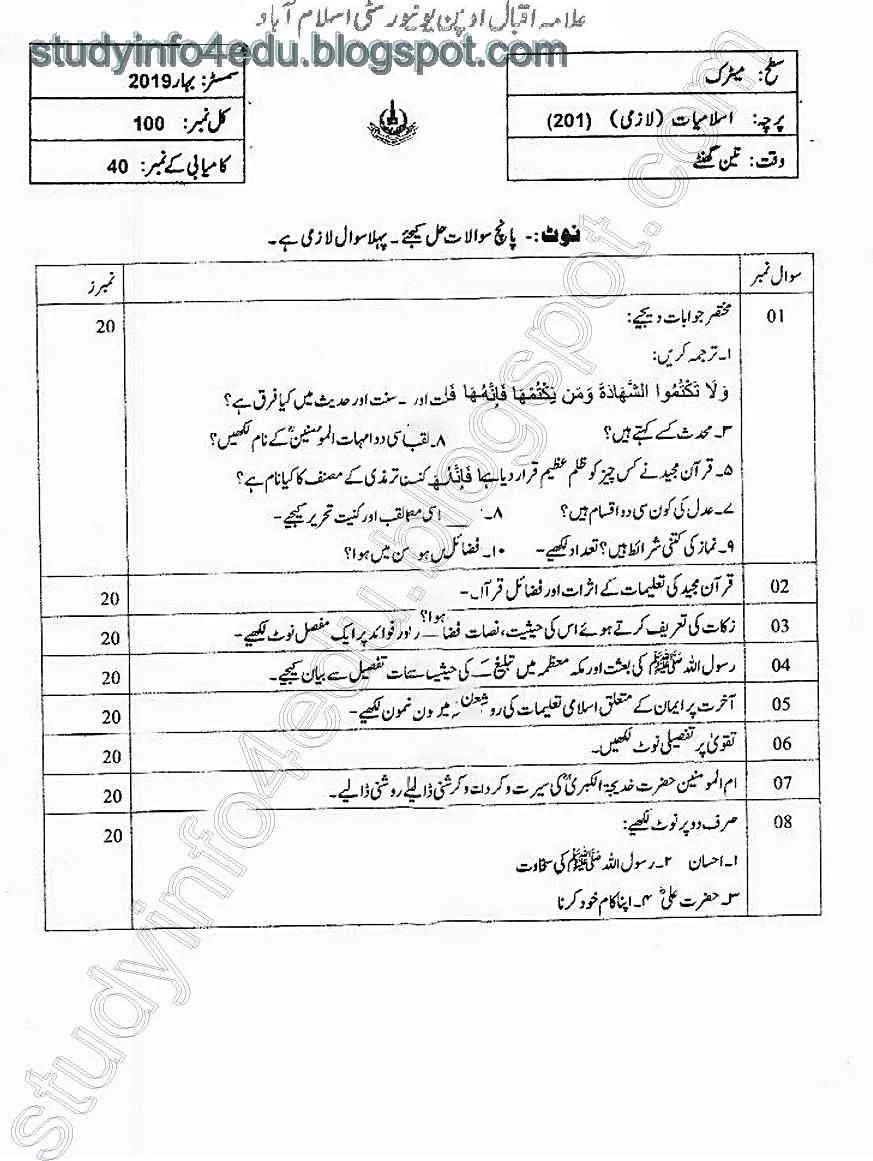 علامہ اقبال اوپن یونیورسٹی اسلام آباد
studyinfo4edu.blogspot.com
سطح: میٹرک
پرچہ: اسلامیات (لازمی) (201)
وقت: تین گھنٹے
سمسٹر: بہار 2019
کل نمبر: 100
کامیابی کے نمبر: 40
نوٹ:- پانچ سوالات حل کیجئے۔ پہلا سوال لازمی ہے۔
سوال نمبر نمبرز
01 مختصر جوابات دیجیے: 20
۱۔ ترجمہ کریں:
وَلَا تَكْتُمُوا الشَّهَادَةَ وَمَن يَكْتُمْهَا فَإِنَّهُ اور ۔ سنت اور حدیث میں کیا فرق ہے؟
۳۔ محدث کسے کہتے ہیں؟ ۸۔ سی دو امہات المومنینؓ کے نام لکھیں؟
۵۔ قرآن مجید نے کس چیز کو ظلم عظیم قرار دیا ترمذی کے مصنف کا کیا نام ہے؟
۷۔ عدل کی کون سی دو اقسام ہیں؟ ۸۔ لقب اور کنیت تحریر کیجیے۔
۹۔ نماز کی کتنی شرائط ہیں؟ تعداد لکھیے۔ ۱۰۔ سن میں ہوا؟
02 قرآن مجید کی تعلیمات کے اثرات اور فضائل 20
03 زکات کی تعریف کرتے ہوئے اس کی حیثیت، نصات ہوا؟ فوائد پر ایک مفصل نوٹ لکھیے۔ 20
04 رسول اللہ ﷺ کی بعثت اور مکہ معظمہ میں تبلیغ کی تفصیل سے بیان کیجیے۔ 20
05 آخرت پر ایمان کے متعلق اسلامی تعلیمات کی لکھیے۔ 20
06 تقویٰ پر تفصیلی نوٹ لکھیں۔ 20
07 ام المومنین حضرت خدیجۃ الکبریٰؓ کی سیرت و روشنی ڈالیے۔ 20
08 صرف دو پر نوٹ لکھیے: 20
۱۔ احسان ۲۔ رسول اللہ ﷺ کی سخاوت
۳۔ حضرت علیؓ ۴۔ اپنا کام خود کرنا
studyinfo4edu.blogspot.com